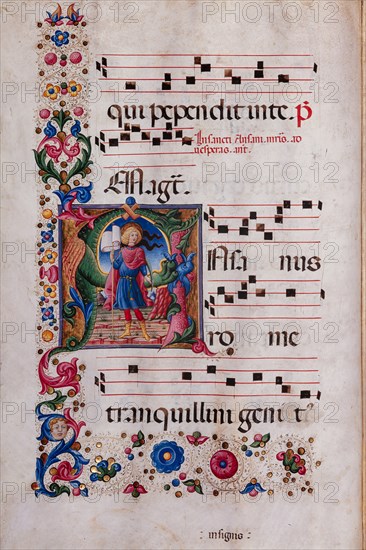 qui pependit inte. P̄
In sancti Ansani mr̄is. ad
uesperas. ant.
E Magt̄.
Ansa nus
ro me
tranquillini genit
insignis